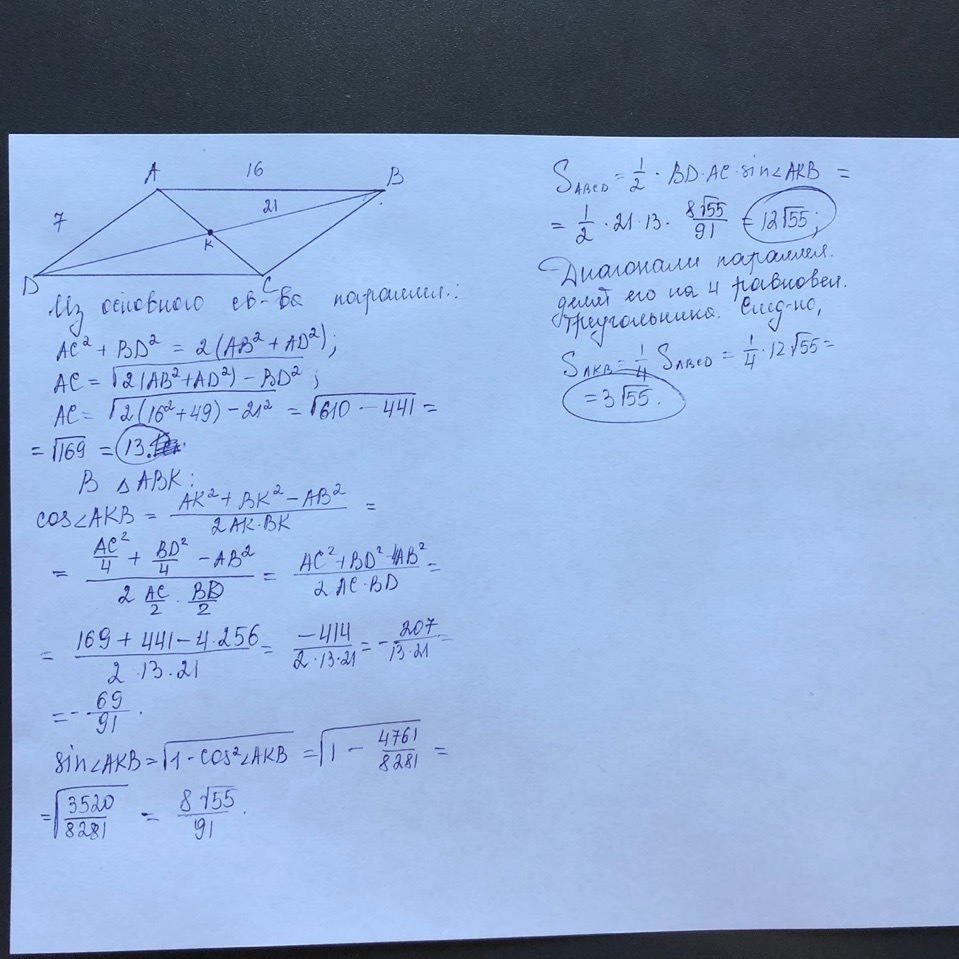 A 16 B
7 21
K
D C
Из основного св-ва параллел.:
AC² + BD² = 2(AB² + AD²);
AC = √(2(AB² + AD²) − BD²);
AC = √(2(16² + 49) − 21²) = √(610 − 441) =
= √169 = 13.
В △ABK:
cos∠AKB = (AK² + BK² − AB²)/(2AK·BK) =
= (AC²/4 + BD²/4 − AB²)/(2 AC/2 · BD/2) = (AC² + BD² − 4AB²)/(2AC·BD) =
= (169 + 441 − 4·256)/(2·13·21) = −414/(2·13·21) = −207/(13·21) =
= −69/91.
sin∠AKB = √(1 − cos²∠AKB) = √(1 − 4761/8281) =
= √(3520/8281) = 8√55/91.
S_ABCD = 1/2 · BD·AC·sin∠AKB =
= 1/2 · 21·13· 8√55/91 = 12√55;
Диагонали параллел.
делят его на 4 равновел.
треугольника. След-но,
S_AKB = 1/4 S_ABCD = 1/4 · 12√55 =
= 3√55.